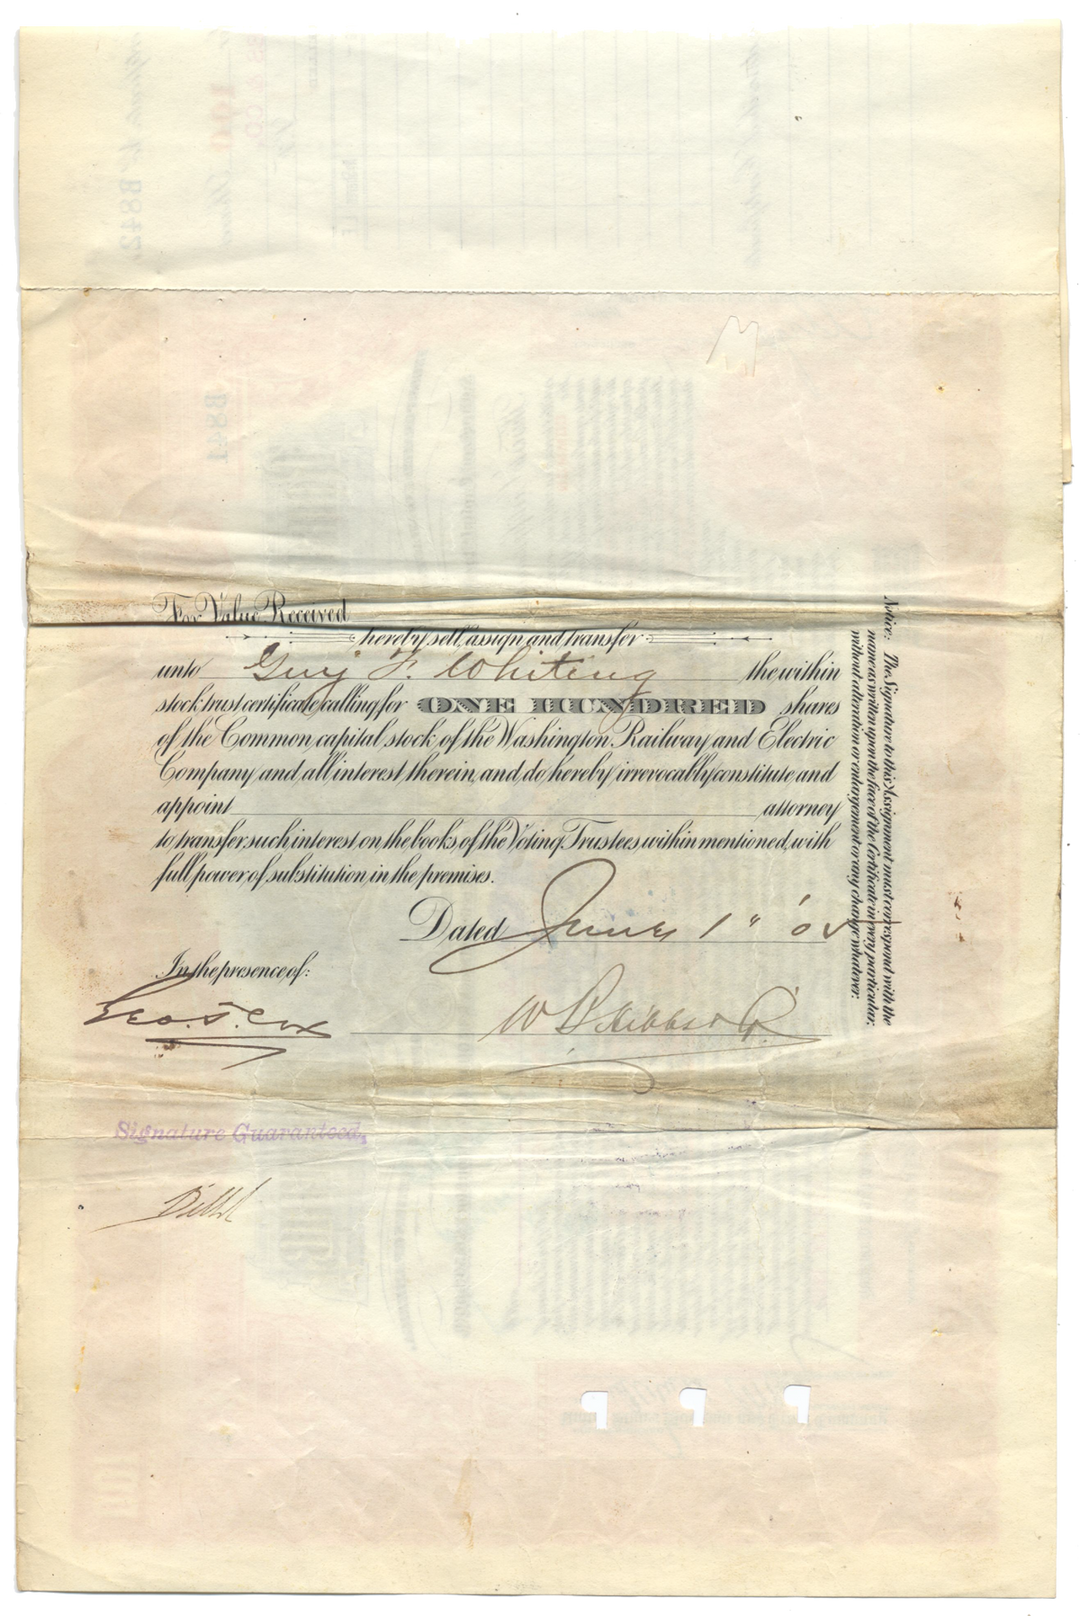 For Value Received
hereby sell, assign and transfer
unto Guy F. Whiting the within
stock trust certificate, calling for ONE HUNDRED shares
of the Common capital stock of the Washington Railway and Electric
Company and all interest therein, and do hereby irrevocably constitute and
appoint attorney
to transfer such interest on the books of the Voting Trustees within mentioned, with
full power of substitution in the premises.
Dated June 1"
In the presence of:
Geo. T. Cox
Signature Guaranteed,
Notice: The Signature to this Assignment must correspond with the
name as written upon the face of the Certificate in every particular,
without alteration or enlargement or any change whatever.
B842
B841